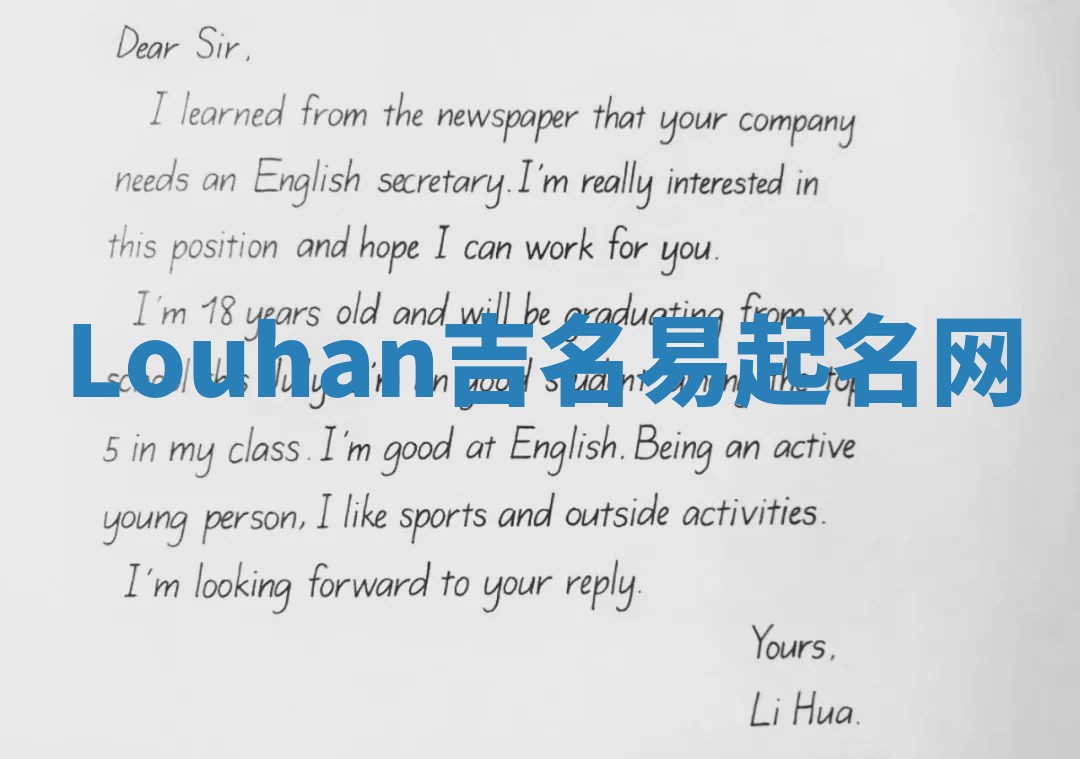 Dear Sir,
I learned from the newspaper that your company
needs an English secretary. I'm really interested in
this position and hope I can work for you.
I'm 18 years old and will be graduating from xx
Louhan吉名易起名网
school this July. I'm an good student among the top
5 in my class. I'm good at English. Being an active
young person, I like sports and outside activities.
I'm looking forward to your reply.
Yours,
Li Hua.